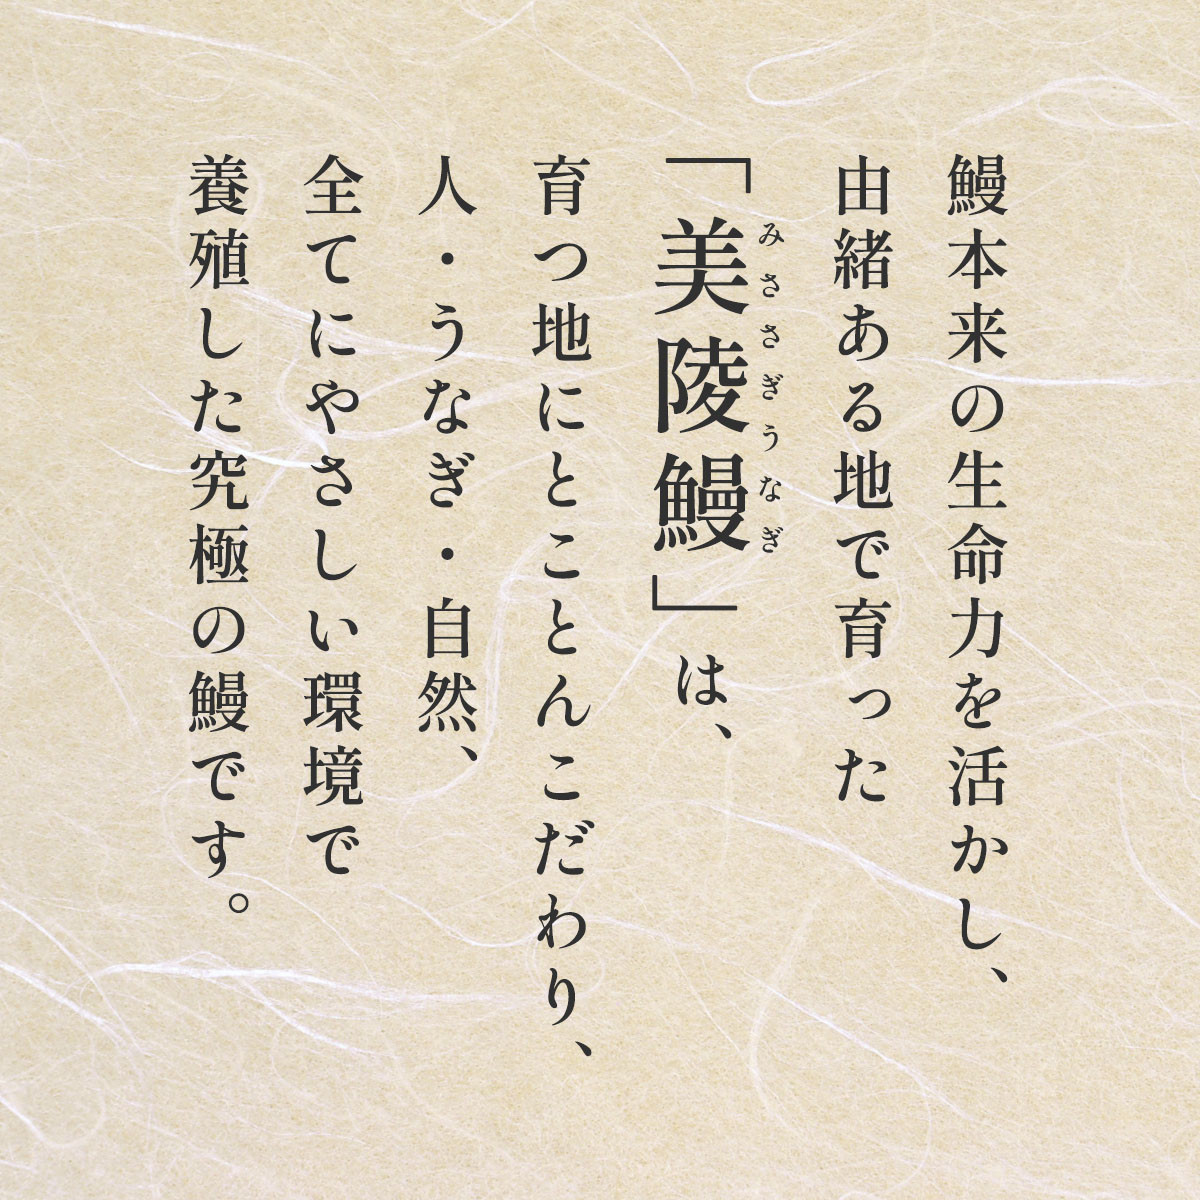 鰻本来の生命力を活かし、
由緒ある地で育った
みささぎうなぎ
「美陵鰻」は、
育つ地にとことんこだわり、
人・うなぎ・自然、
全てにやさしい環境で
養殖した究極の鰻です。